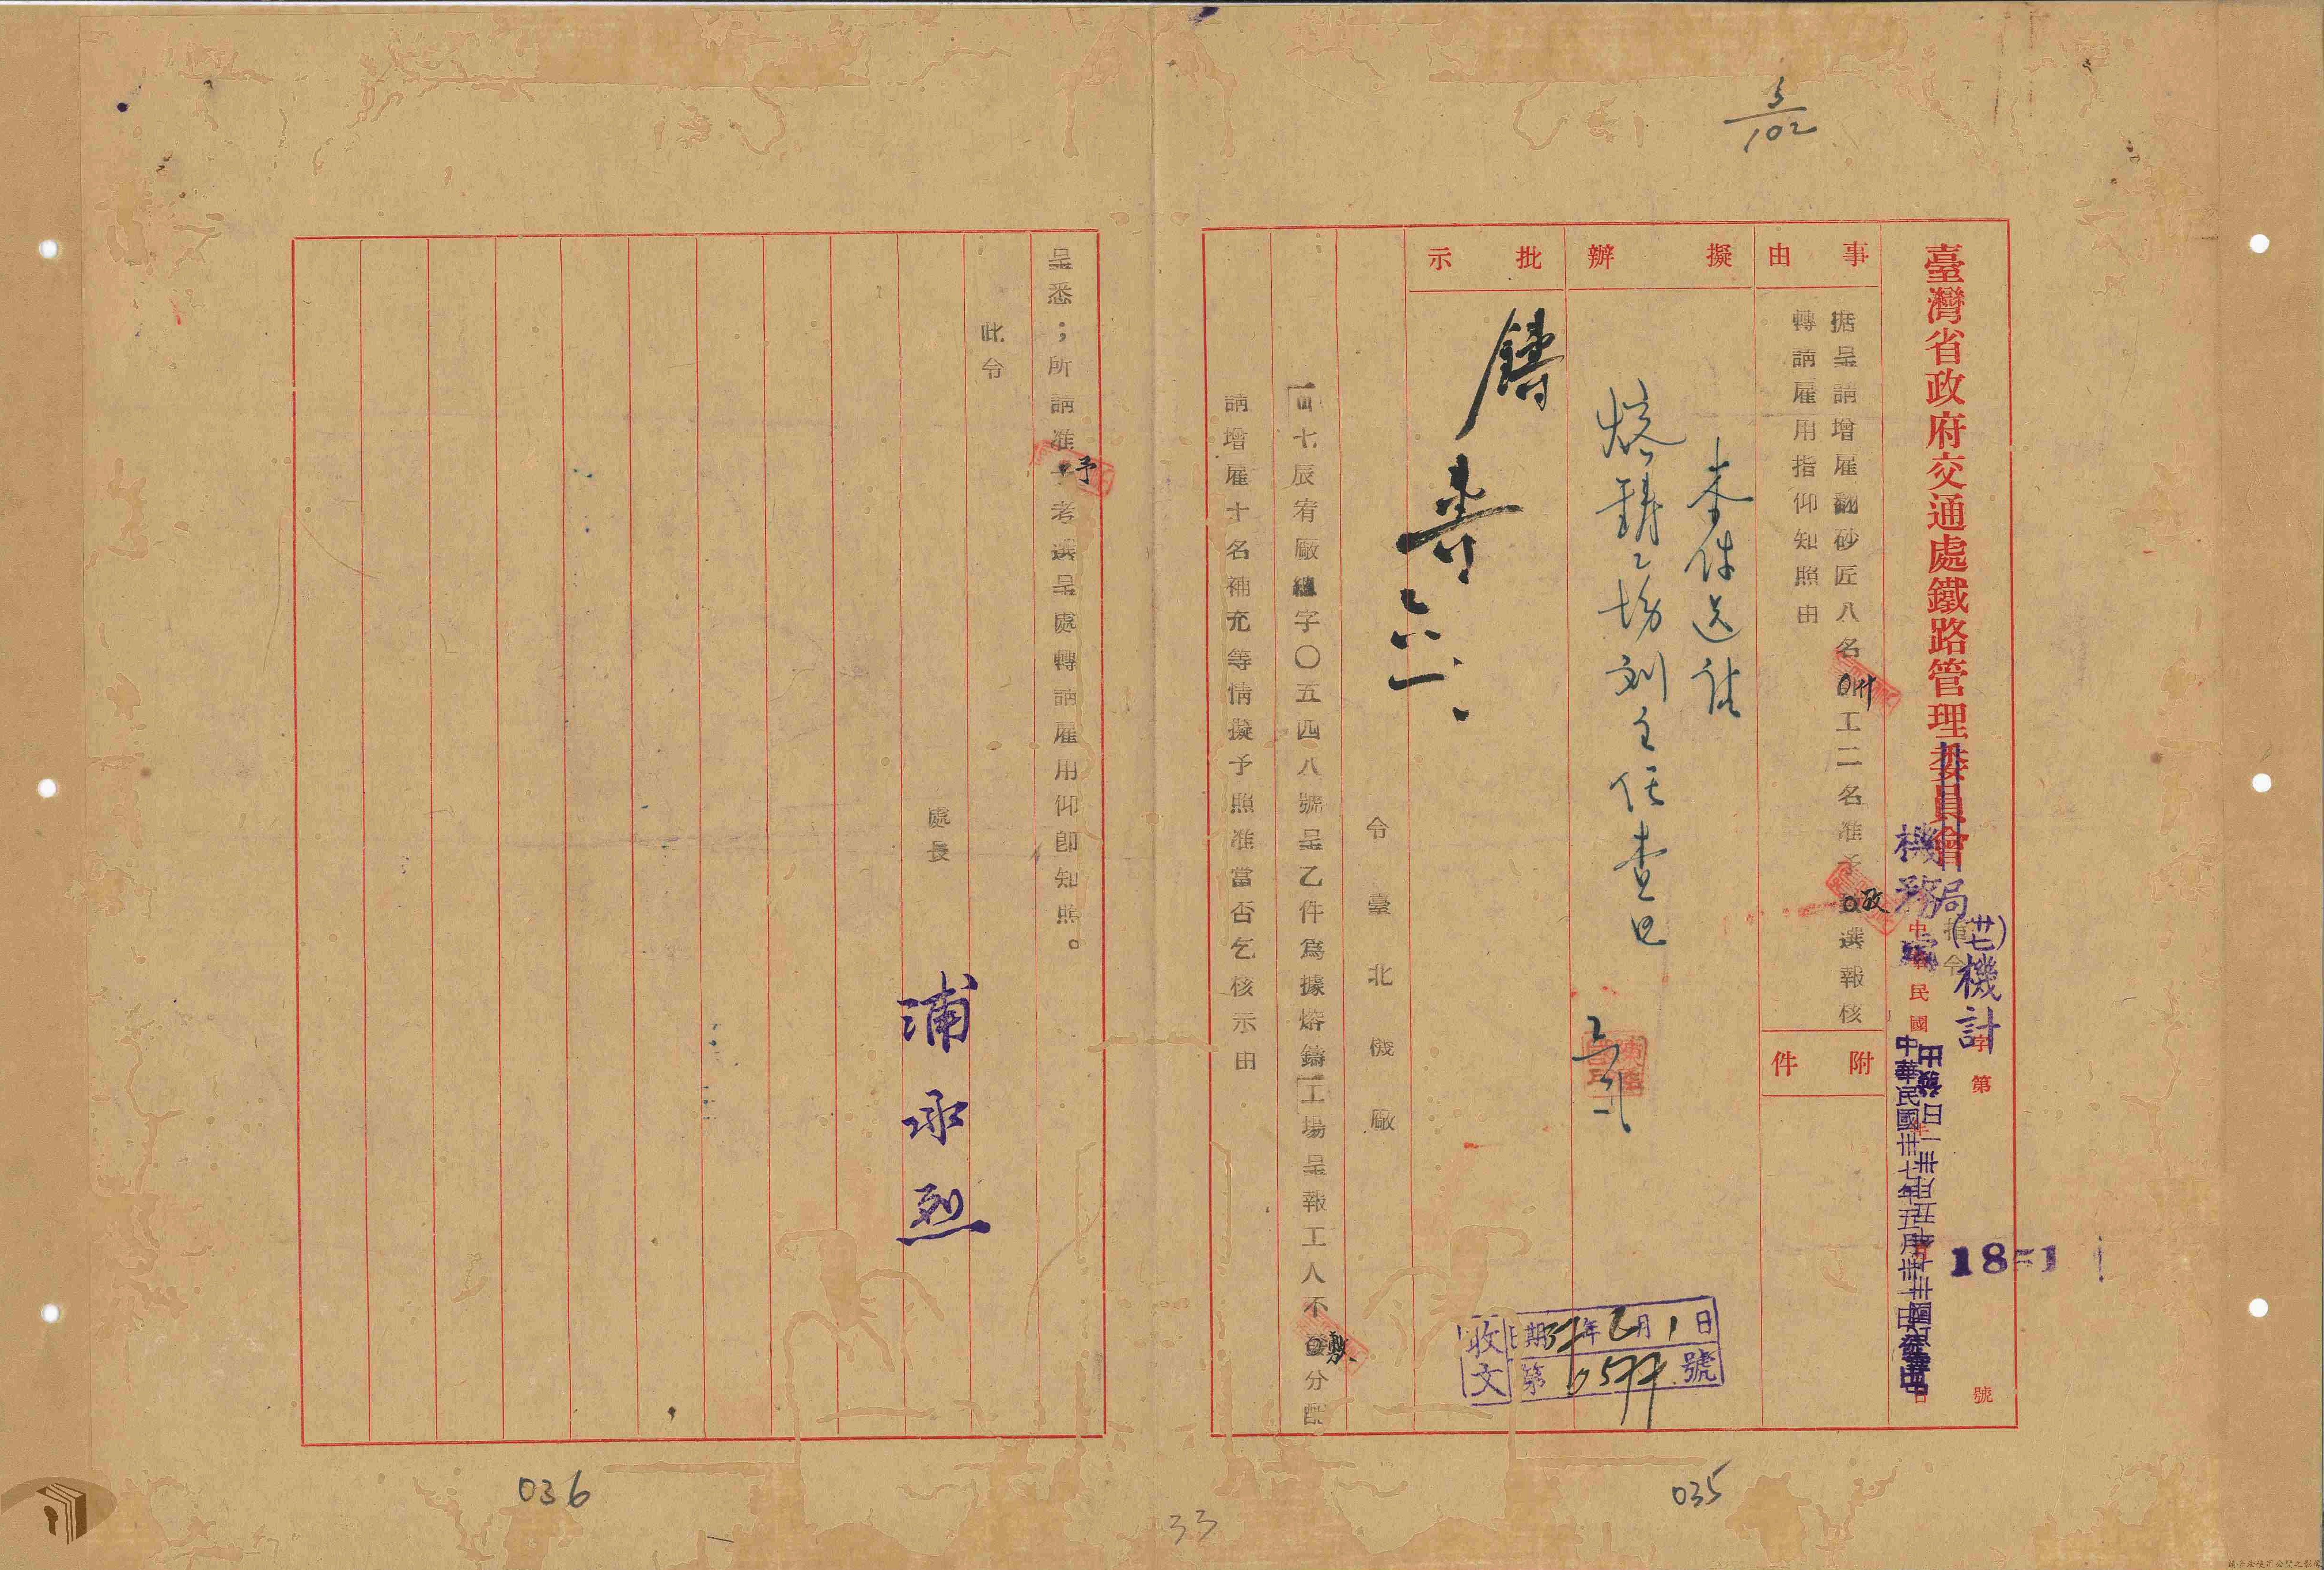 5/102
臺灣省政府交通處鐵路管理委員會
局
機務處
指令
(卅七)機計字第1851號
中華民國卅七年五月卅一日
中華民國卅七年五月卅一日發出
事由
据呈請增雇翻砂匠八名附工二名准予改選報核
轉請雇用指仰知照由
附件
擬辦
本件送請
熔鑄工場劉主任查照
批示
鑄
收文
日期37年6月1日
第0577號
令臺北機廠
卅七辰宥廠總字〇五四八號呈乙件為據熔鑄工場呈報工人不敷分配
請增雇十名補充等情擬予照准當否乞核示由
呈悉；所請准予考選呈處轉請雇用仰卽知照。
此令
處長
浦承烈
036
33
035